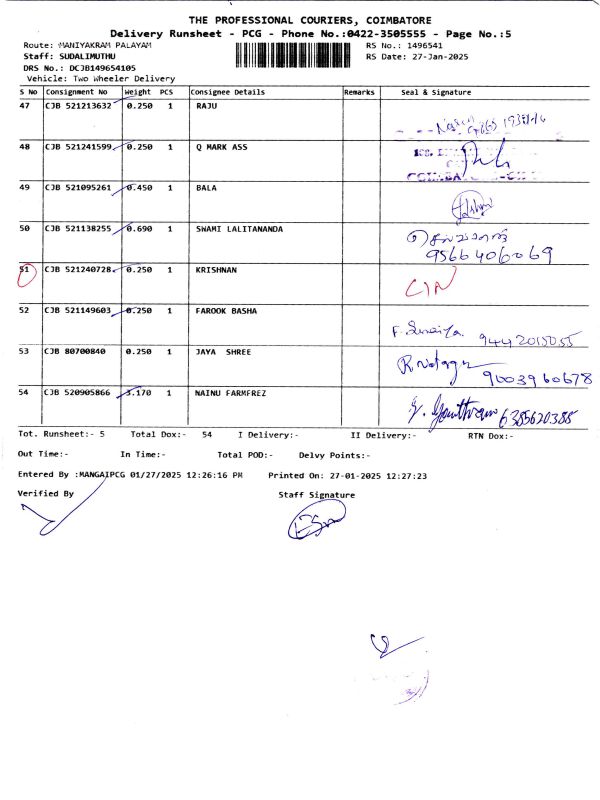 THE PROFESSIONAL COURIERS, COIMBATORE
Delivery Runsheet - PCG - Phone No.:0422-3505555 - Page No.:5
Route: MANIYAKRAM PALAYAM RS No.: 1496541
Staff: SUDALIMUTHU RS Date: 27-Jan-2025
DRS No.: DCJB149654105
Vehicle: Two Wheeler Delivery
S No Consignment No Weight PCS Consignee Details Remarks Seal & Signature
47 CJB 521213632 0.250 1 RAJU
48 CJB 521241599 0.250 1 Q MARK ASS
49 CJB 521095261 0.450 1 BALA
50 CJB 521138255 0.690 1 SWAMI LALITANANDA
9566406069
51 CJB 521240728 0.250 1 KRISHNAN CIN
52 CJB 521149603 0.250 1 FAROOK BASHA
9442015055
53 CJB 80700840 0.250 1 JAYA SHREE
9003960678
54 CJB 520905866 3.170 1 NAINU FARMFREZ
6385620388
Tot. Runsheet:- 5 Total Dox:- 54 I Delivery:- II Delivery:- RTN Dox:-
Out Time:- In Time:- Total POD:- Delvy Points:-
Entered By :MANGAIPCG 01/27/2025 12:26:16 PM Printed On: 27-01-2025 12:27:23
Verified By Staff Signature